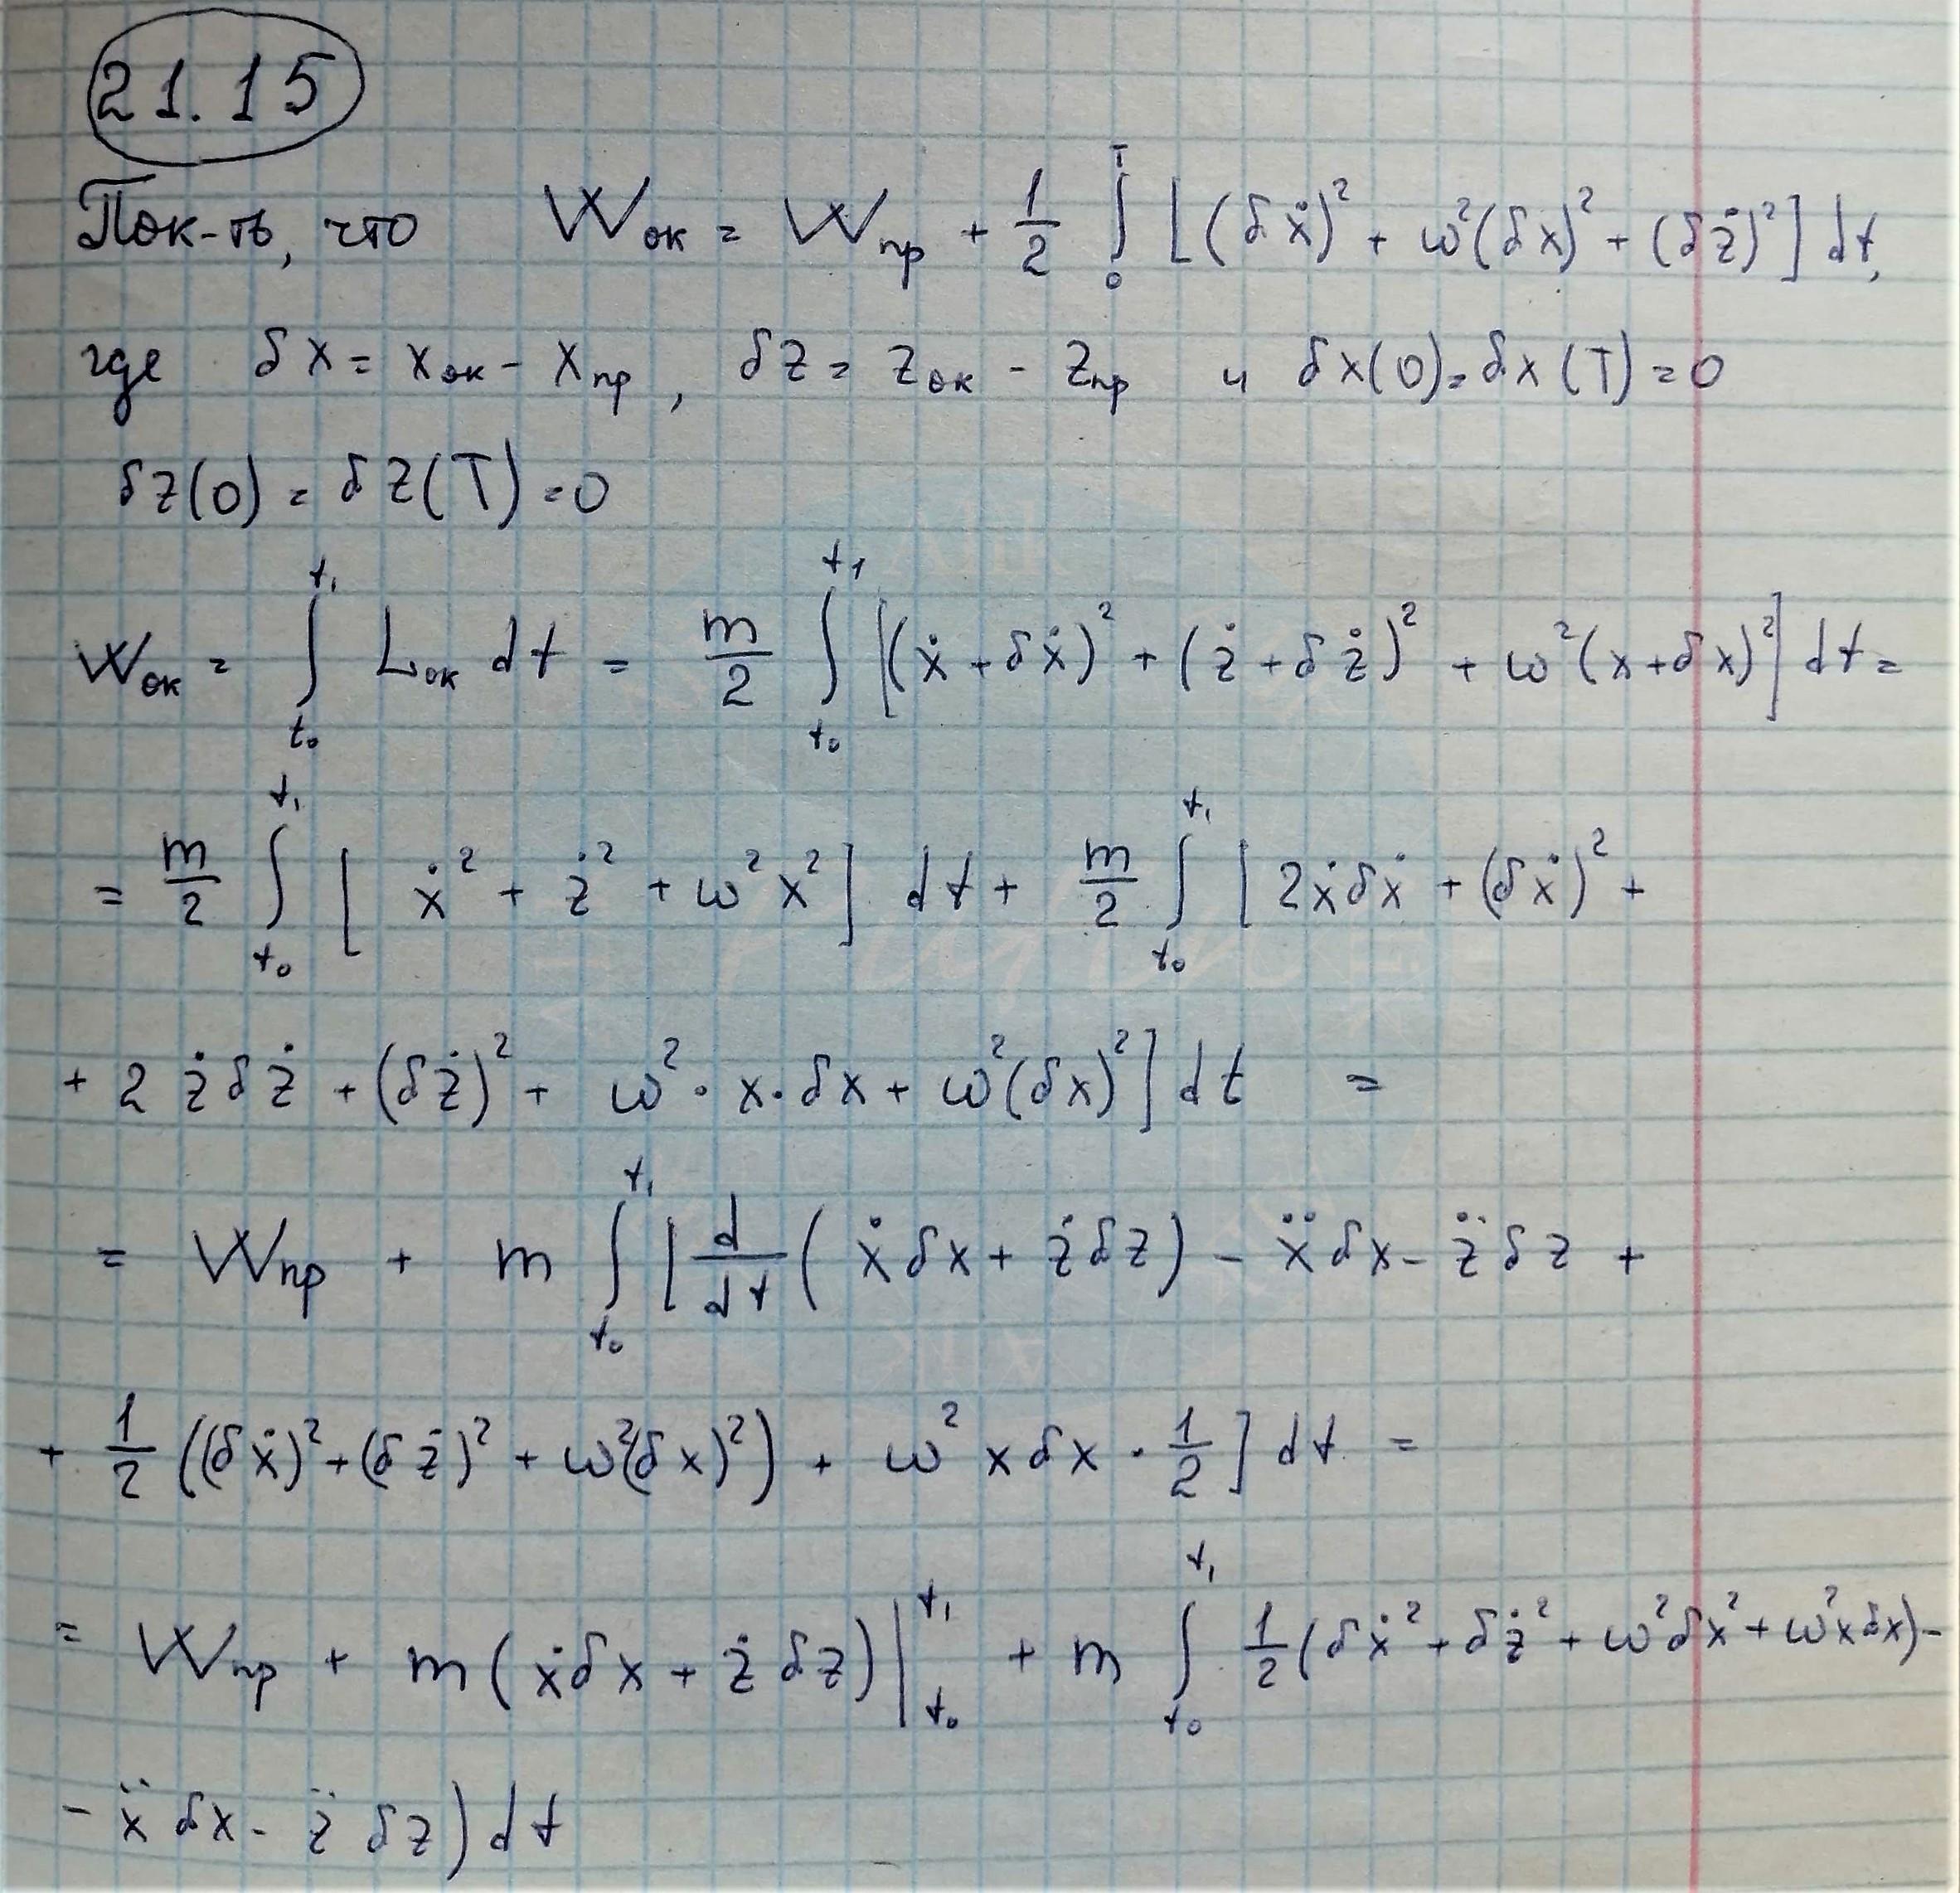 21.15
Пок-ть, что W_ок = W_пр + 1/2 ∫_0^T [(δẋ)² + ω²(δx)² + (δż)²] dt,
где δx = x_ок - x_пр, δz = z_ок - z_пр и δx(0) = δx(T) = 0
δz(0) = δz(T) = 0
W_ок = ∫_{t₀}^{t₁} L_ок dt = m/2 ∫_{t₀}^{t₁} [(ẋ + δẋ)² + (ż + δż)² + ω²(x + δx)²] dt =
= m/2 ∫_{t₀}^{t₁} [ẋ² + ż² + ω²x²] dt + m/2 ∫_{t₀}^{t₁} [2ẋδẋ + (δẋ)² +
+ 2żδż + (δż)² + ω²·x·δx + ω²(δx)²] dt =
= W_пр + m ∫_{t₀}^{t₁} [d/dt (ẋδx + żδz) - ẍδx - z̈δz +
+ 1/2 ((δẋ)² + (δż)² + ω²(δx)²) + ω² x δx · 1/2] dt =
= W_пр + m(ẋδx + żδz)|_{t₀}^{t₁} + m ∫_{t₀}^{t₁} 1/2 (δẋ² + δż² + ω²δx² + ω²xδx) -
- ẍδx - z̈δz) dt